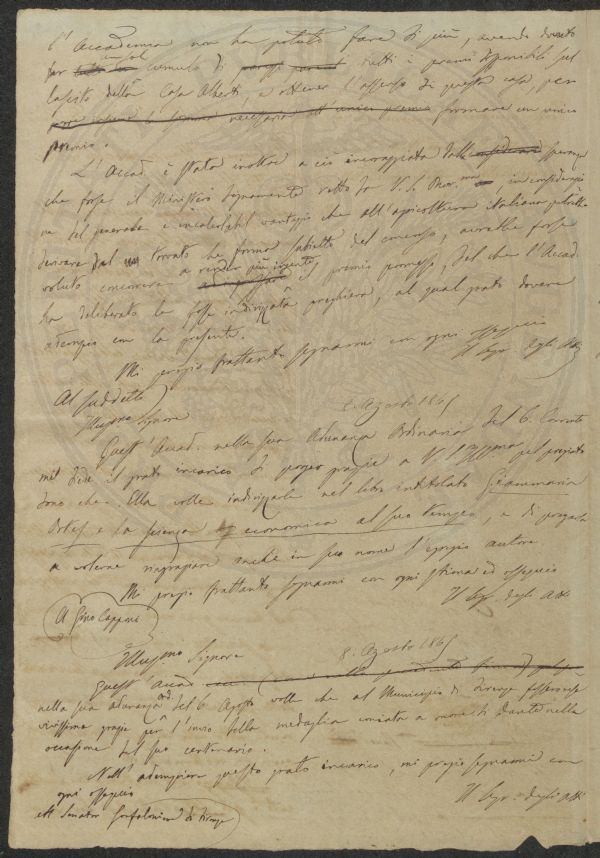 L'Accademia non ha potuto fare di più, avendo dovuto
per cumulo di tutti i premi disponibili sul
lascito della Casa Alberti, a ottener l'assenso di questa casa per
formare un unico
premio.
L'Accad. è stata inoltre a ciò incoraggiata dalla speranza
che forse il Ministero degnamente retto da V. S.
del generale e incalcolabil vantaggio che all'apicoltura italiana potrebbe
derivare dal trovato che forma subietto del concorso, avrebbe forse
voluto concorrere a render più ingente il premio promesso, del che l'Accad.
ha deliberato le fosse indirizzata preghiera, al qual grato dovere
adempio con la presente.
Mi pregio frattanto segnarmi con ogni ossequio
Il Segr. degli Atti
Al suddetto
Illustrmo Signore
Agosto 1865
Quest'Accad. nella sua Adunanza Ordinaria del 6. Corrente
mi diede il grato incarico di porger grazie a V. S. Illma pel pregiato
dono che Ella volle indirizzarle nel libro intitolato Giammaria
Ortes e la scienza economica al suo tempo, e di pregarla
a volerne ringraziare anche in suo nome l'egregio autore.
Mi pregio frattanto segnarmi con ogni stima ed ossequio
Il Segr. degli Atti
A Gino Capponi
Illustrmo Signore
8. Agosto 1865
Quest'Accad.
nella sua adunanza ord. del 6 Agosto volle che al Municipio di Firenze fossero rese
vivissime grazie per l'invio della medaglia coniata a onore di Dante nella
occasione del suo centenario.
Nell'adempiere questo grato incarico, mi pregio segnarmi con
ogni ossequio
Il Segr. degli Atti
Al Senator Gonfaloniere di Firenze